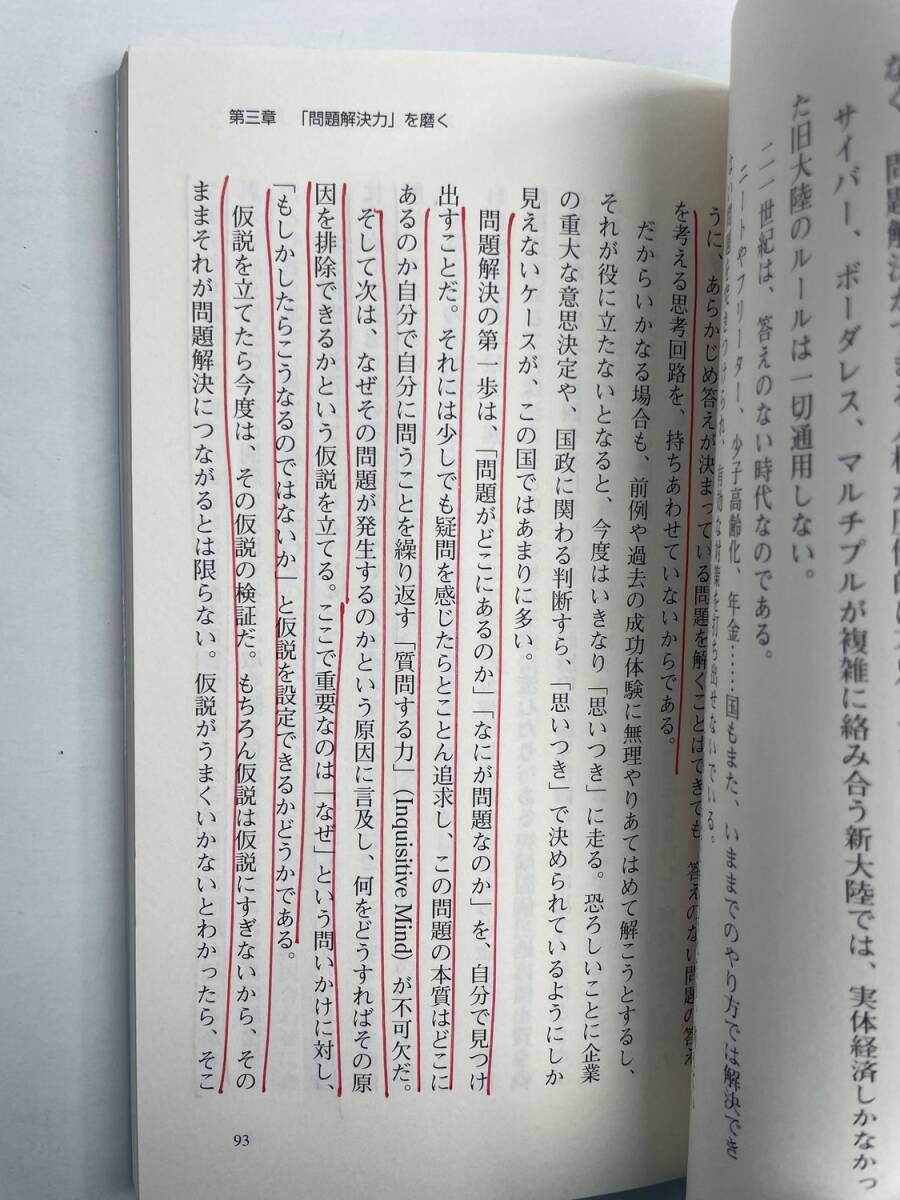 なく、問題解決ができる人材な
サイバー、ボーダレス、マルチプルが複雑に絡み合う新大陸では、実体経済しかなかっ
た旧大陸のルールは一切通用しない。
二一世紀は、答えのない時代なのである。
ニートやフリーター、少子高齢化、年金……国もまた、いままでのやり方では解決でき
ない問題をつきつけられ、有効な対策を打ち出せないでいる。
第三章 「問題解決力」を磨く
うに、あらかじめ答えが決まっている問題を解くことはできても、答えのない問題の答え
を考える思考回路を、持ちあわせていないからである。
だからいかなる場合も、前例や過去の成功体験に無理やりあてはめて解こうとするし、
それが役に立たないとなると、今度はいきなり「思いつき」に走る。恐ろしいことに企業
の重大な意思決定や、国政に関わる判断すら、「思いつき」で決められているようにしか
見えないケースが、この国ではあまりに多い。
問題解決の第一歩は、「問題がどこにあるのか」「なにが問題なのか」を、自分で見つけ
出すことだ。それには少しでも疑問を感じたらとことん追求し、この問題の本質はどこに
あるのか自分で自分に問うことを繰り返す「質問する力」(Inquisitive Mind) が不可欠だ。
そして次は、なぜその問題が発生するのかという原因に言及し、何をどうすればその原
因を排除できるかという仮説を立てる。ここで重要なのは「なぜ」という問いかけに対し、
「もしかしたらこうなるのではないか」と仮説を設定できるかどうかである。
仮説を立てたら今度は、その仮説の検証だ。もちろん仮説は仮説にすぎないから、その
ままそれが問題解決につながるとは限らない。仮説がうまくいかないとわかったら、そこ
93